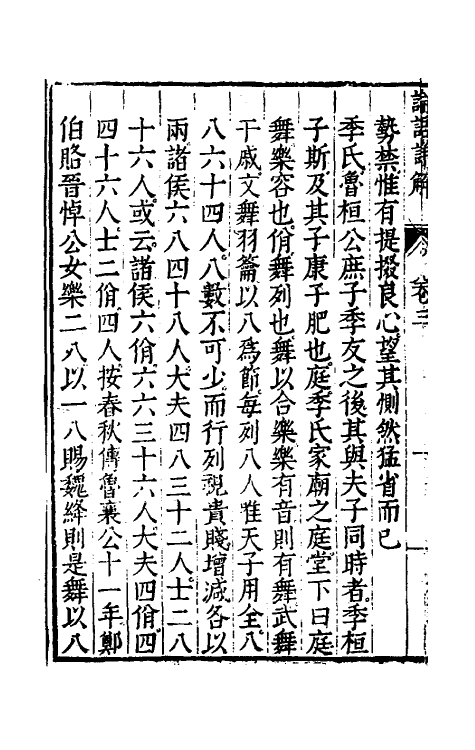 論語詳解　卷三
勢禁惟有提掇良心望其惻然猛省而已
季氏魯桓公庶子季友之後其與夫子同時者季桓
子斯及其子康子肥也庭季氏家廟之庭堂下曰庭
舞樂容也佾舞列也舞以合樂樂有音則有舞武舞
干戚文舞羽籥以八爲節每列八人惟天子用全八
八六十四人八數不可少而行列視貴賤增減各以
兩諸侯六八四十八人大夫四八三十二人士二八
十六人或云諸侯六佾六六三十六人大夫四佾四
四十六人士二佾四人按春秋傳魯襄公十一年鄭
伯賂晉悼公女樂二八以一八賜魏絳則是舞以八